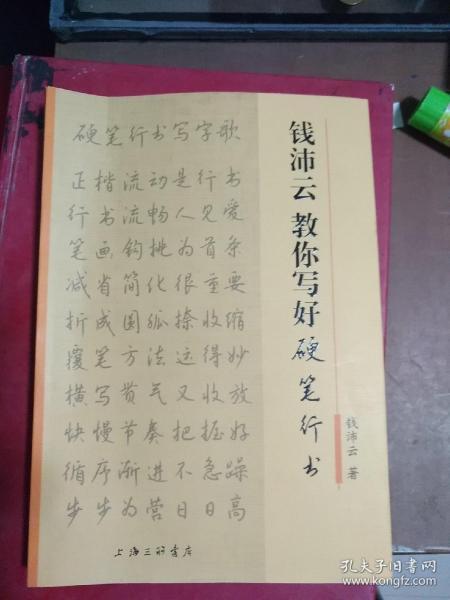 硬笔行书写字歌
正楷流动是行书
行书流畅人见爱
笔画钩挑为首条
减省简化很重要
折成圆弧捺收缩
覆笔方法运得妙
横写贯气又收放
快慢节奏把握好
循序渐进不急躁
步步为营日日高
上海三联书店
钱沛云教你写好硬笔行书
钱沛云 著
孔夫子旧书网
www.kongfz.com